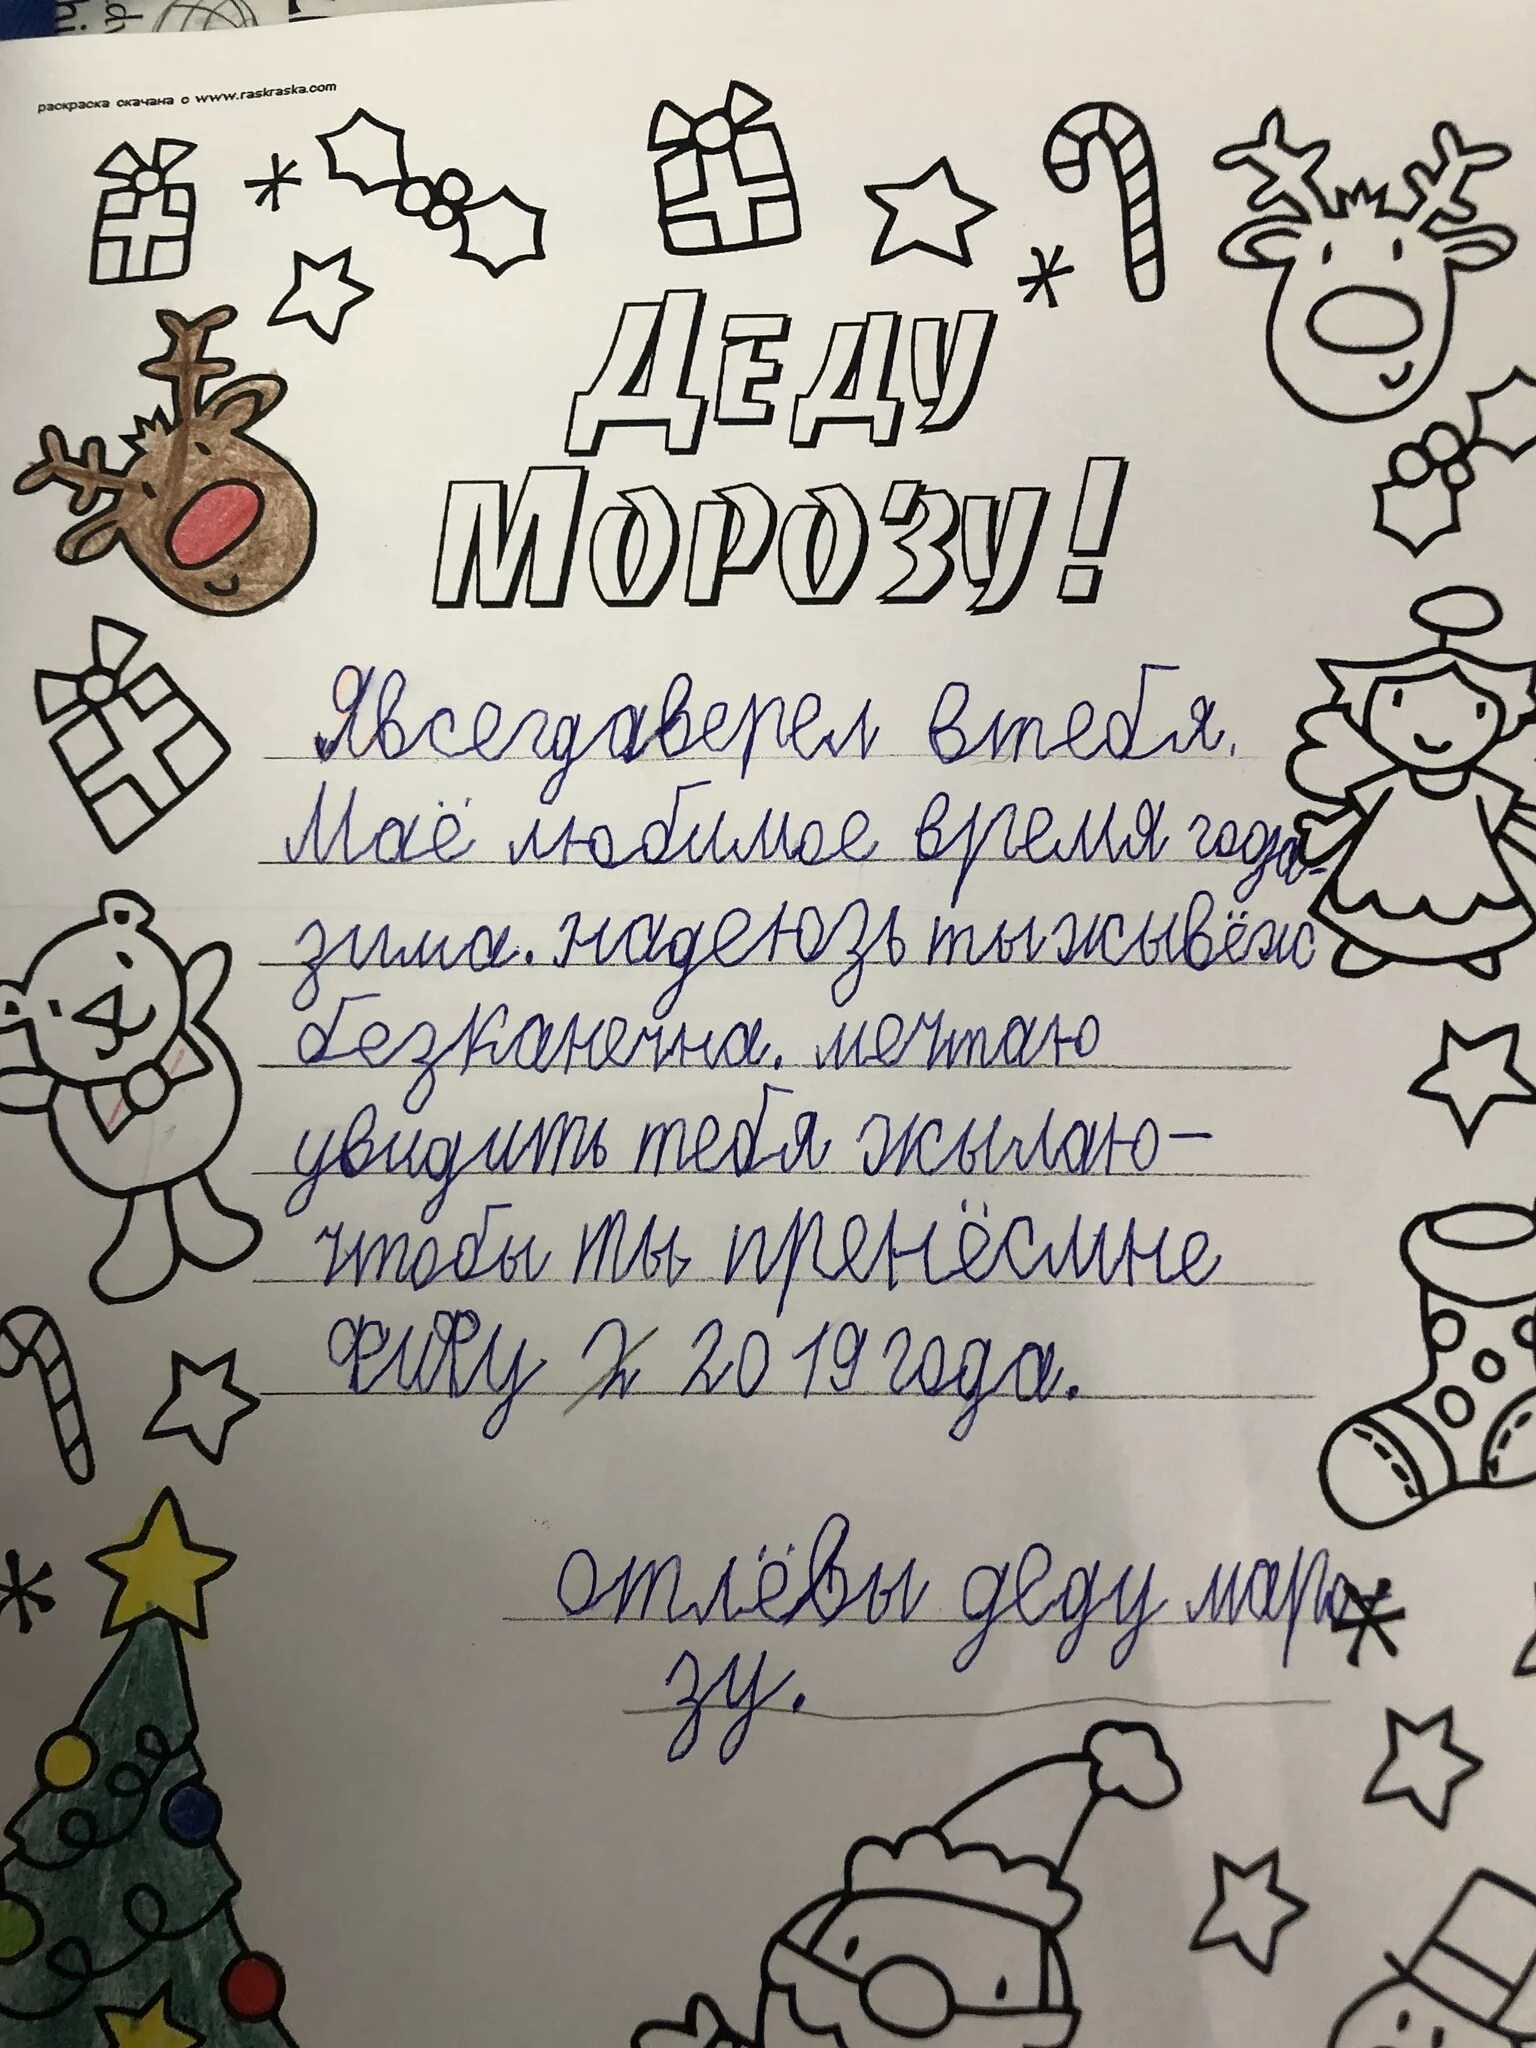 раскраска скачана с www.raskraska.com
ДЕДУ
МОРОЗУ!
Явсегдаверел втебя.
Маё любимое время года-
зима. надеюзь тыжывёж
безканечна. мечтаю
увидить тебя жылаю-
чтобы ты пренёсмне
ФИФУ 2019года.
отлёвы деду мар
зу.